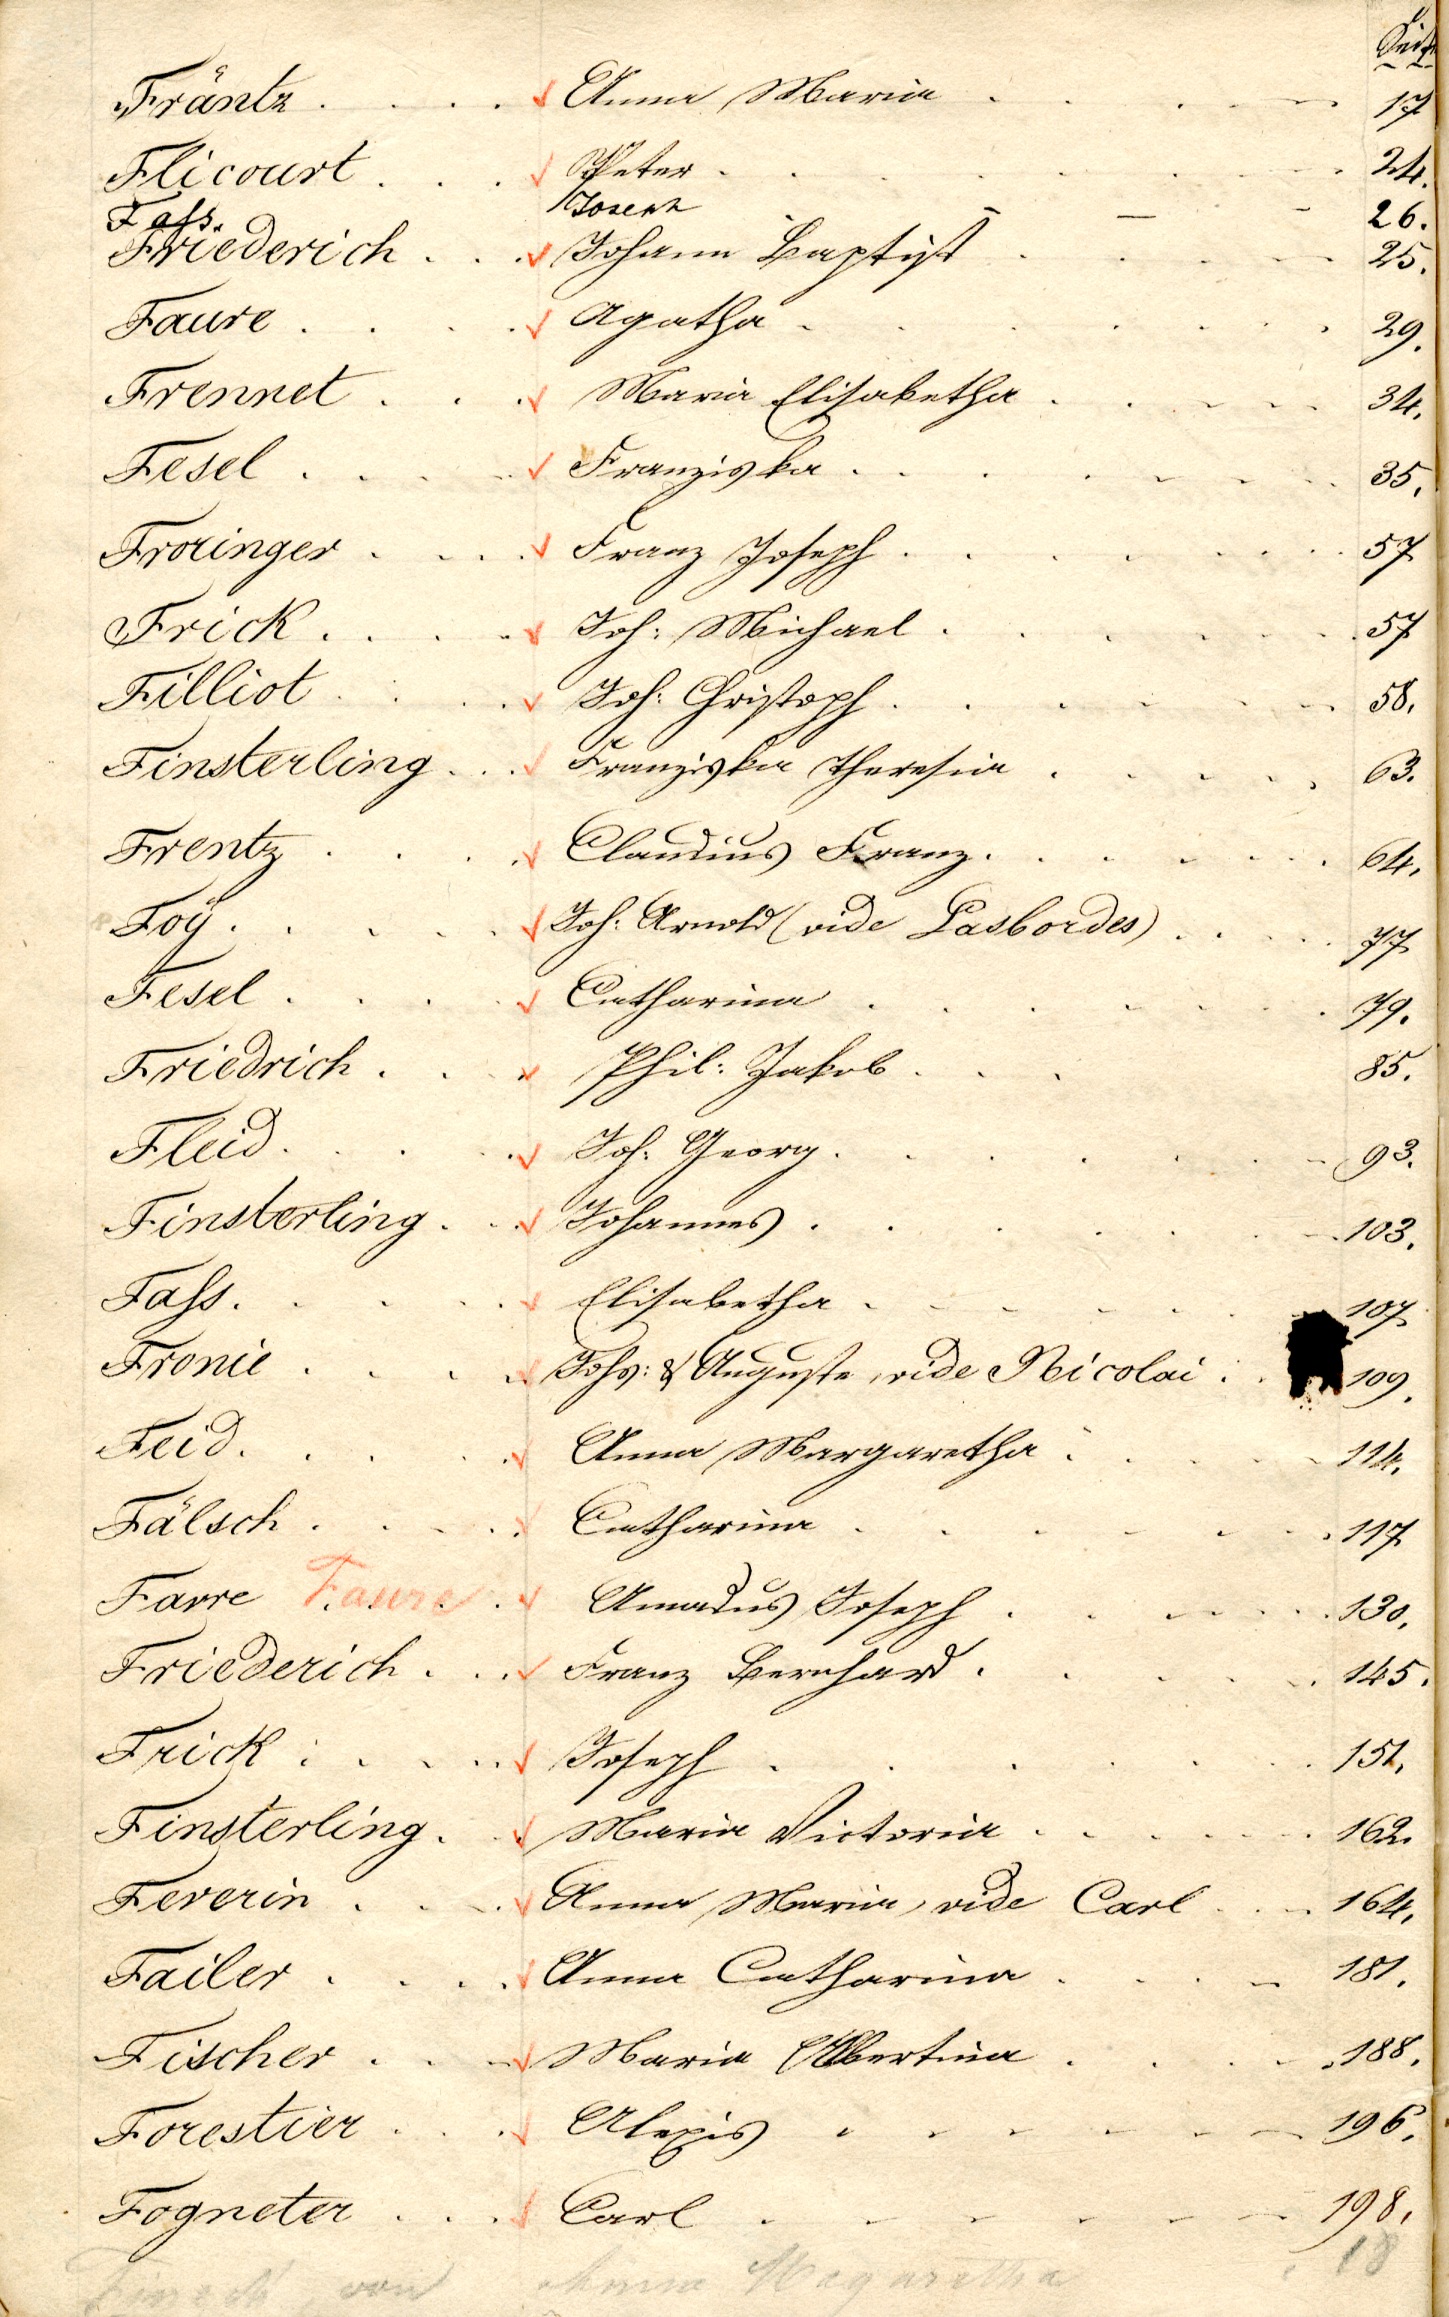 Seite
Fräntz . . . . Anna Maria . . . . 17
Flicourt . . . Peter . . . . . . . 24.
Fass. Joseph – – – 26.
Friederich . . . Johann Baptist . . . . 25.
Faure . . . . Agatha . . . . . . . 29.
Frennet . . . Maria Elisabetha . . . . . 34.
Fesel . . . . Franziska . . . . . . 35.
Froringer . . . . Franz Joseph . . . . . . 57
Frick . . . . Joh: Michael . . . . . . 57
Filliot . . . . Joh: Christoph . . . . . . 58.
Finsterling . . . Franziska Theresia . . . . . 63.
Frentz . . . . Claudius Franz . . . . . . 64.
Foÿ . . . . . Joh: Arnold (vide Lasbordes) . . . . 77
Fesel . . . . Catharina . . . . . . 79.
Friedrich . . . Phil: Jakob . . . 85.
Fleid . . . . Joh: Georg . . . . . . 93.
Finsterling . . . Johannes . . . . . . 103.
Fass . . . . . Elisabetha . . . . . . 107
Fronie . . . . Johs: & Auguste, vide Nicolai . . 109.
Feid . . . . . Anna Margaretha . . . . . 114.
Fälsch . . . . Catharina . . . . . . 117
Favre Faure . Amadus Joseph . . . . . 130.
Friederich . . . Franz Bernhard . . . . . 145.
Frick . . . . Joseph . . . . . . 151.
Finsterling . . Maria Victoria . . . . . 162.
Feverin . . . Anna Maria, vide Carl . . . 164.
Failer . . . . Anna Catharina . . . . 181.
Fischer . . . Maria Albertina . . . . . 188.
Forestier . . . Alexis . . . . . . 196.
Fogneter . . . Carl . . . . . . 198.
von Anna Magaretha . 18